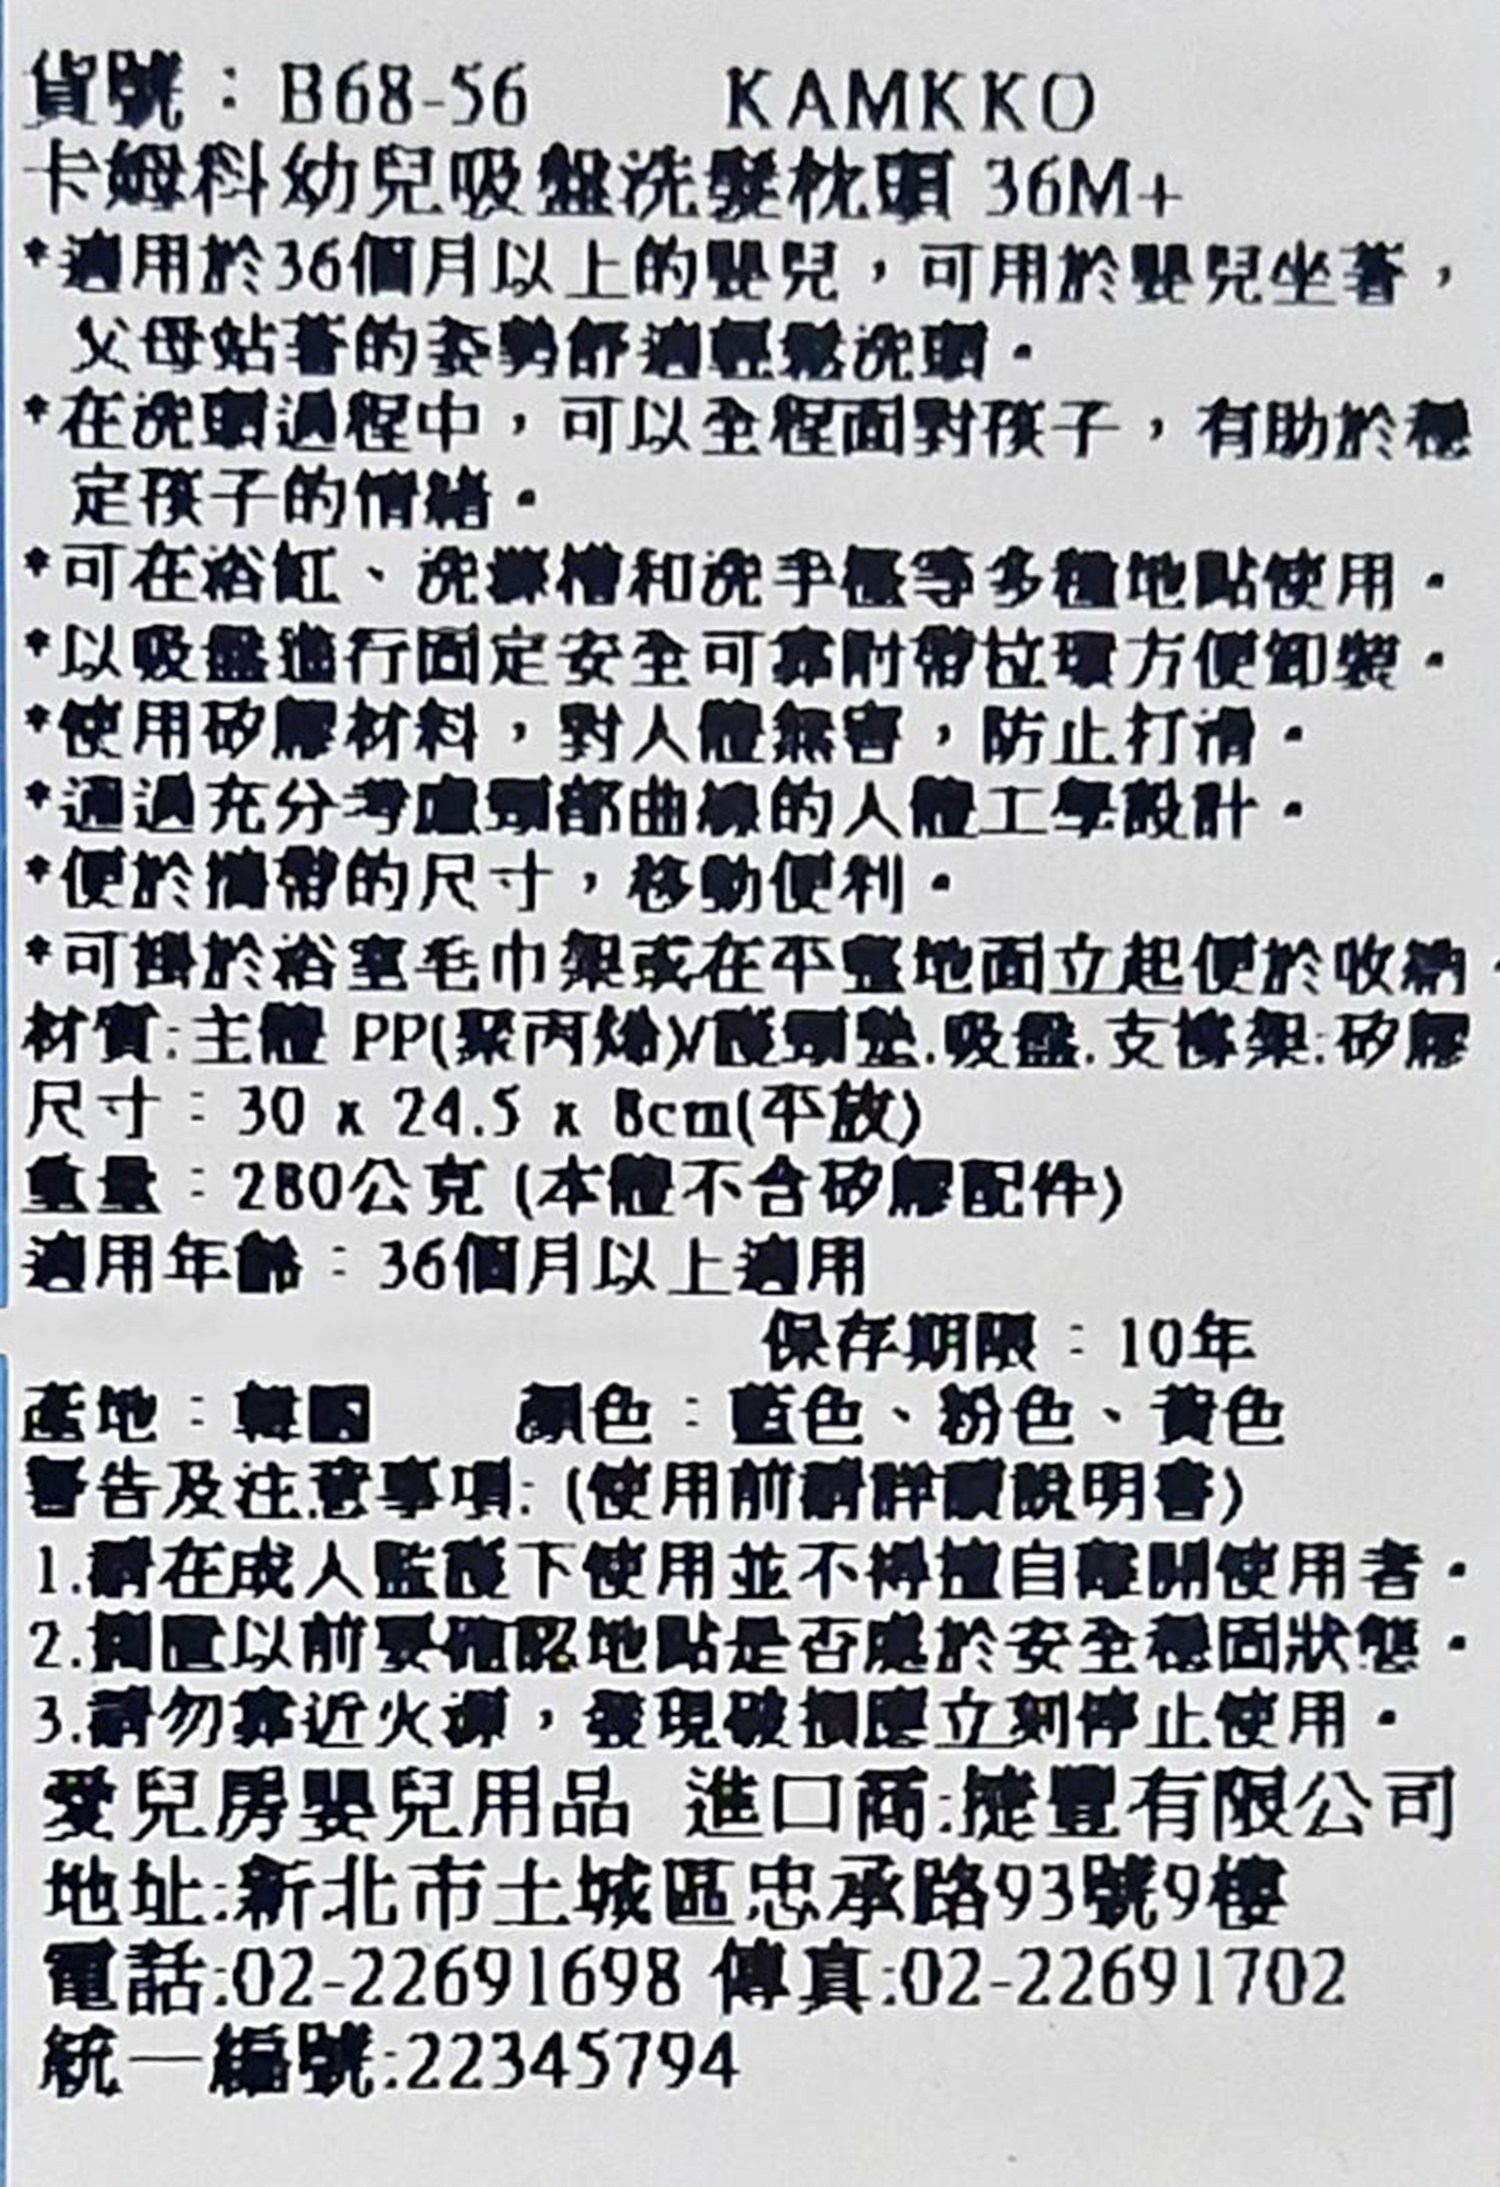 貨號：B68-56 KAMKKO
卡姆科幼兒吸盤洗髮枕頭 36M+
*適用於36個月以上的嬰兒，可用於嬰兒坐著，
父母站著的姿勢舒適輕鬆洗頭。
*在洗頭過程中，可以全程面對孩子，有助於穩
定孩子的情緒。
*可在浴缸、洗滌槽和洗手檯等多種地點使用。
*以吸盤進行固定安全可靠附帶拉環方便卸裝。
*使用矽膠材料，對人體無害，防止打滑。
*通過充分考慮頸部曲線的人體工學設計。
*便於攜帶的尺寸，移動便利。
*可掛於浴室毛巾架或在平整地面立起便於收納。
材質:主體 PP(聚丙烯)/護頸墊.吸盤.支撐架:矽膠
尺寸：30 x 24.5 x 8cm(平放)
重量：280公克 (本體不含矽膠配件)
適用年齡：36個月以上適用
保存期限：10年
產地：韓國 顏色：藍色、粉色、黃色
警告及注意事項: (使用前請詳讀說明書)
1.請在成人監護下使用並不得擅自離開使用者。
2.擱置以前要確認地點是否處於安全穩固狀態。
3.請勿靠近火源，發現破損應立刻停止使用。
愛兒房嬰兒用品 進口商:捷豐有限公司
地址:新北市土城區忠承路93號9樓
電話:02-22691698 傳真:02-22691702
統一編號:22345794